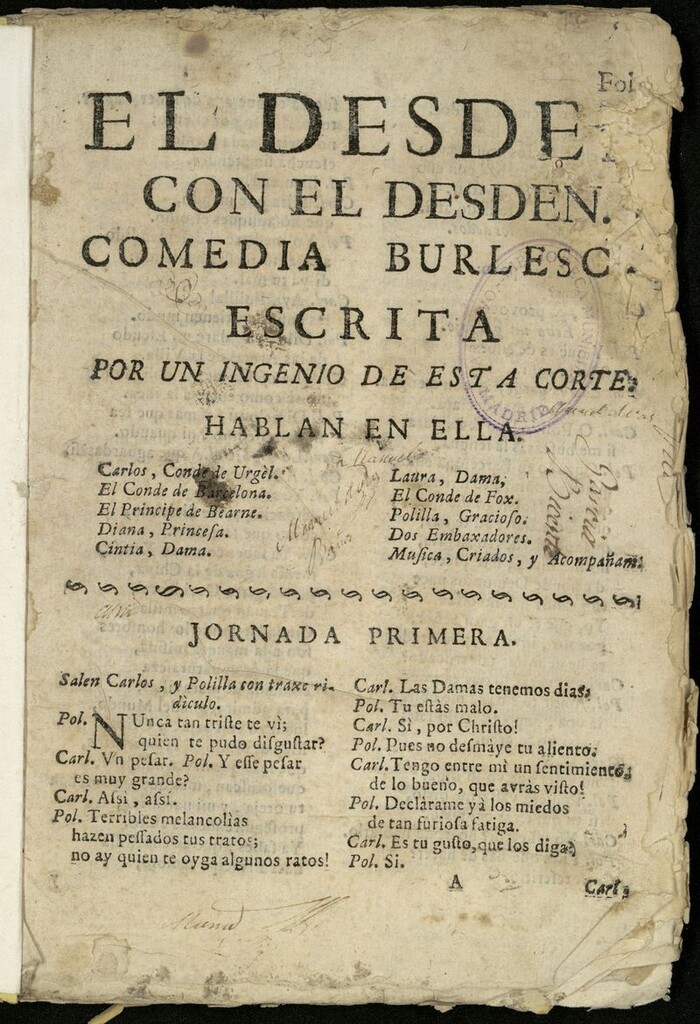 Fol.
EL DESDE
CON EL DESDEN.
COMEDIA BURLESC
ESCRITA
POR UN INGENIO DE ESTA CORTE.
HABLAN EN ELLA.
Carlos, Conde de Urgèl.
El Conde de Barcelona.
El Principe de Bearne.
Diana, Princeſa.
Cintia, Dama.
Laura, Dama,
El Conde de Fox.
Polilla, Gracioſo.
Dos Embaxadores.
Muſica, Criados, y Acompañam.
Manuel
Garcia
MADRID
JORNADA PRIMERA.
Salen Carlos, y Polilla con traxe ri-
diculo.
Pol. NUnca tan triſte te vì;
quien te pudo diſguſtar?
Carl. Vn peſar. Pol. Y eſſe peſar
es muy grande?
Carl. Aſsi, aſsi.
Pol. Terribles melancolìas
hazen peſſados tus tratos;
no ay quien te oyga algunos ratos!
Carl. Las Damas tenemos dias.
Pol. Tu eſtàs malo.
Carl. Sì, por Chriſto!
Pol. Pues no deſmaye tu aliento.
Carl. Tengo entre mì un ſentimiento,
de lo bueno, que avràs viſto!
Pol. Declárame yà los miedos
de tan furioſa fatiga.
Carl. Es tu guſto, que los diga?
Pol. Si.
A
Carl.